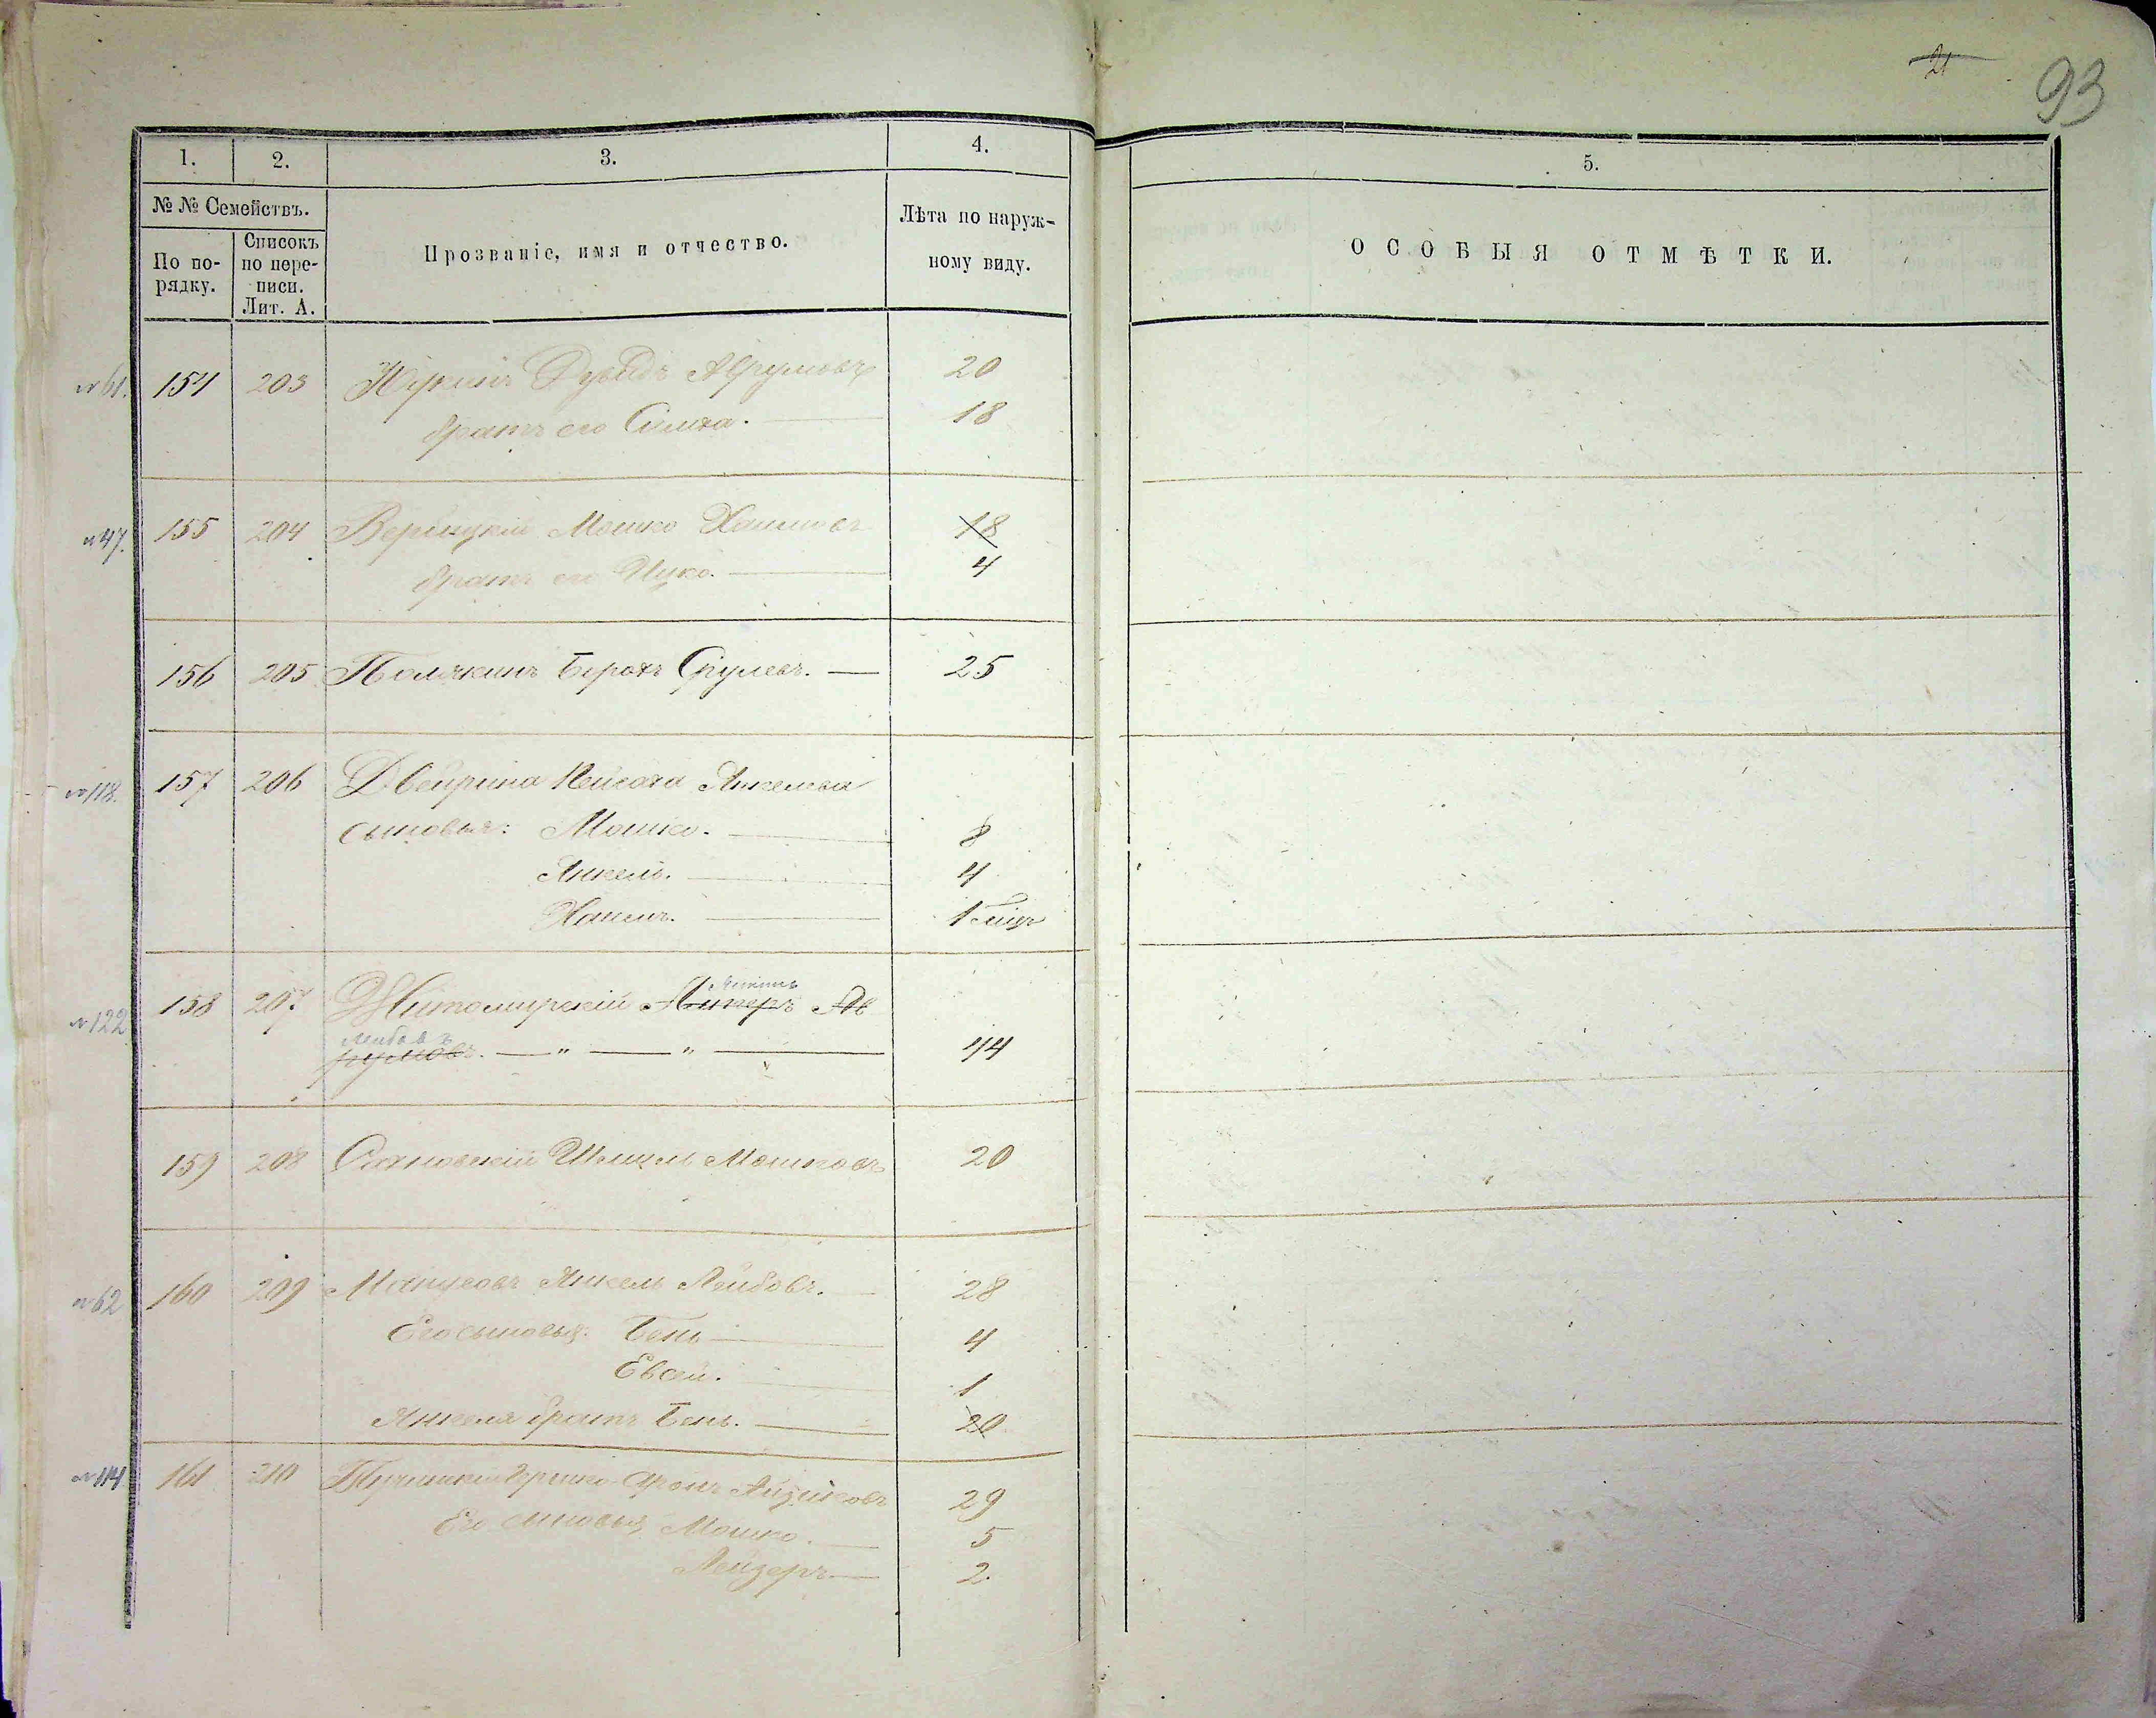 21
93
1. 2. 3. 4. 5.
№ № Семействъ.
По по-рядку.
Списокъ по пере-писи. Лит. А.
Прозваніе, имя и отчество.
Лѣта по наруж-ному виду.
ОСОБЫЯ ОТМѢТКИ.
№ 61. 154 203 Дувидъ Абрумовъ 20
братъ его Симха. — 18
№ 47. 155 204 Верницкій Мошко Хаимовъ 18
братъ его Ицко. — 4
156 205 Полякинъ Берохъ Срулевъ. — 25
№ 118. 157 206 Двейрина Пейсаха Янкелева
сыновья: Мошко. — 8
Янкель. — 4
Хаимъ. — 1 міцъ
Янкель
№ 122 158 207. Житомирскій Липеръ Аб
Лейбовъ
румовъ. — " — " — 44
159 208 Сахновскій Шмуль Мошковъ 20
№ 62 160 209 Манусовъ Янкель Лейбовъ. — 28
Его сыновья: Бень — 4
Евсей. 1
Янкеля братъ Бень. — 20
№ 114 161 210 Гершко-Аронъ Айзиковъ 29
Его сыновья Мошко. — 5
Лейзеръ — 2.